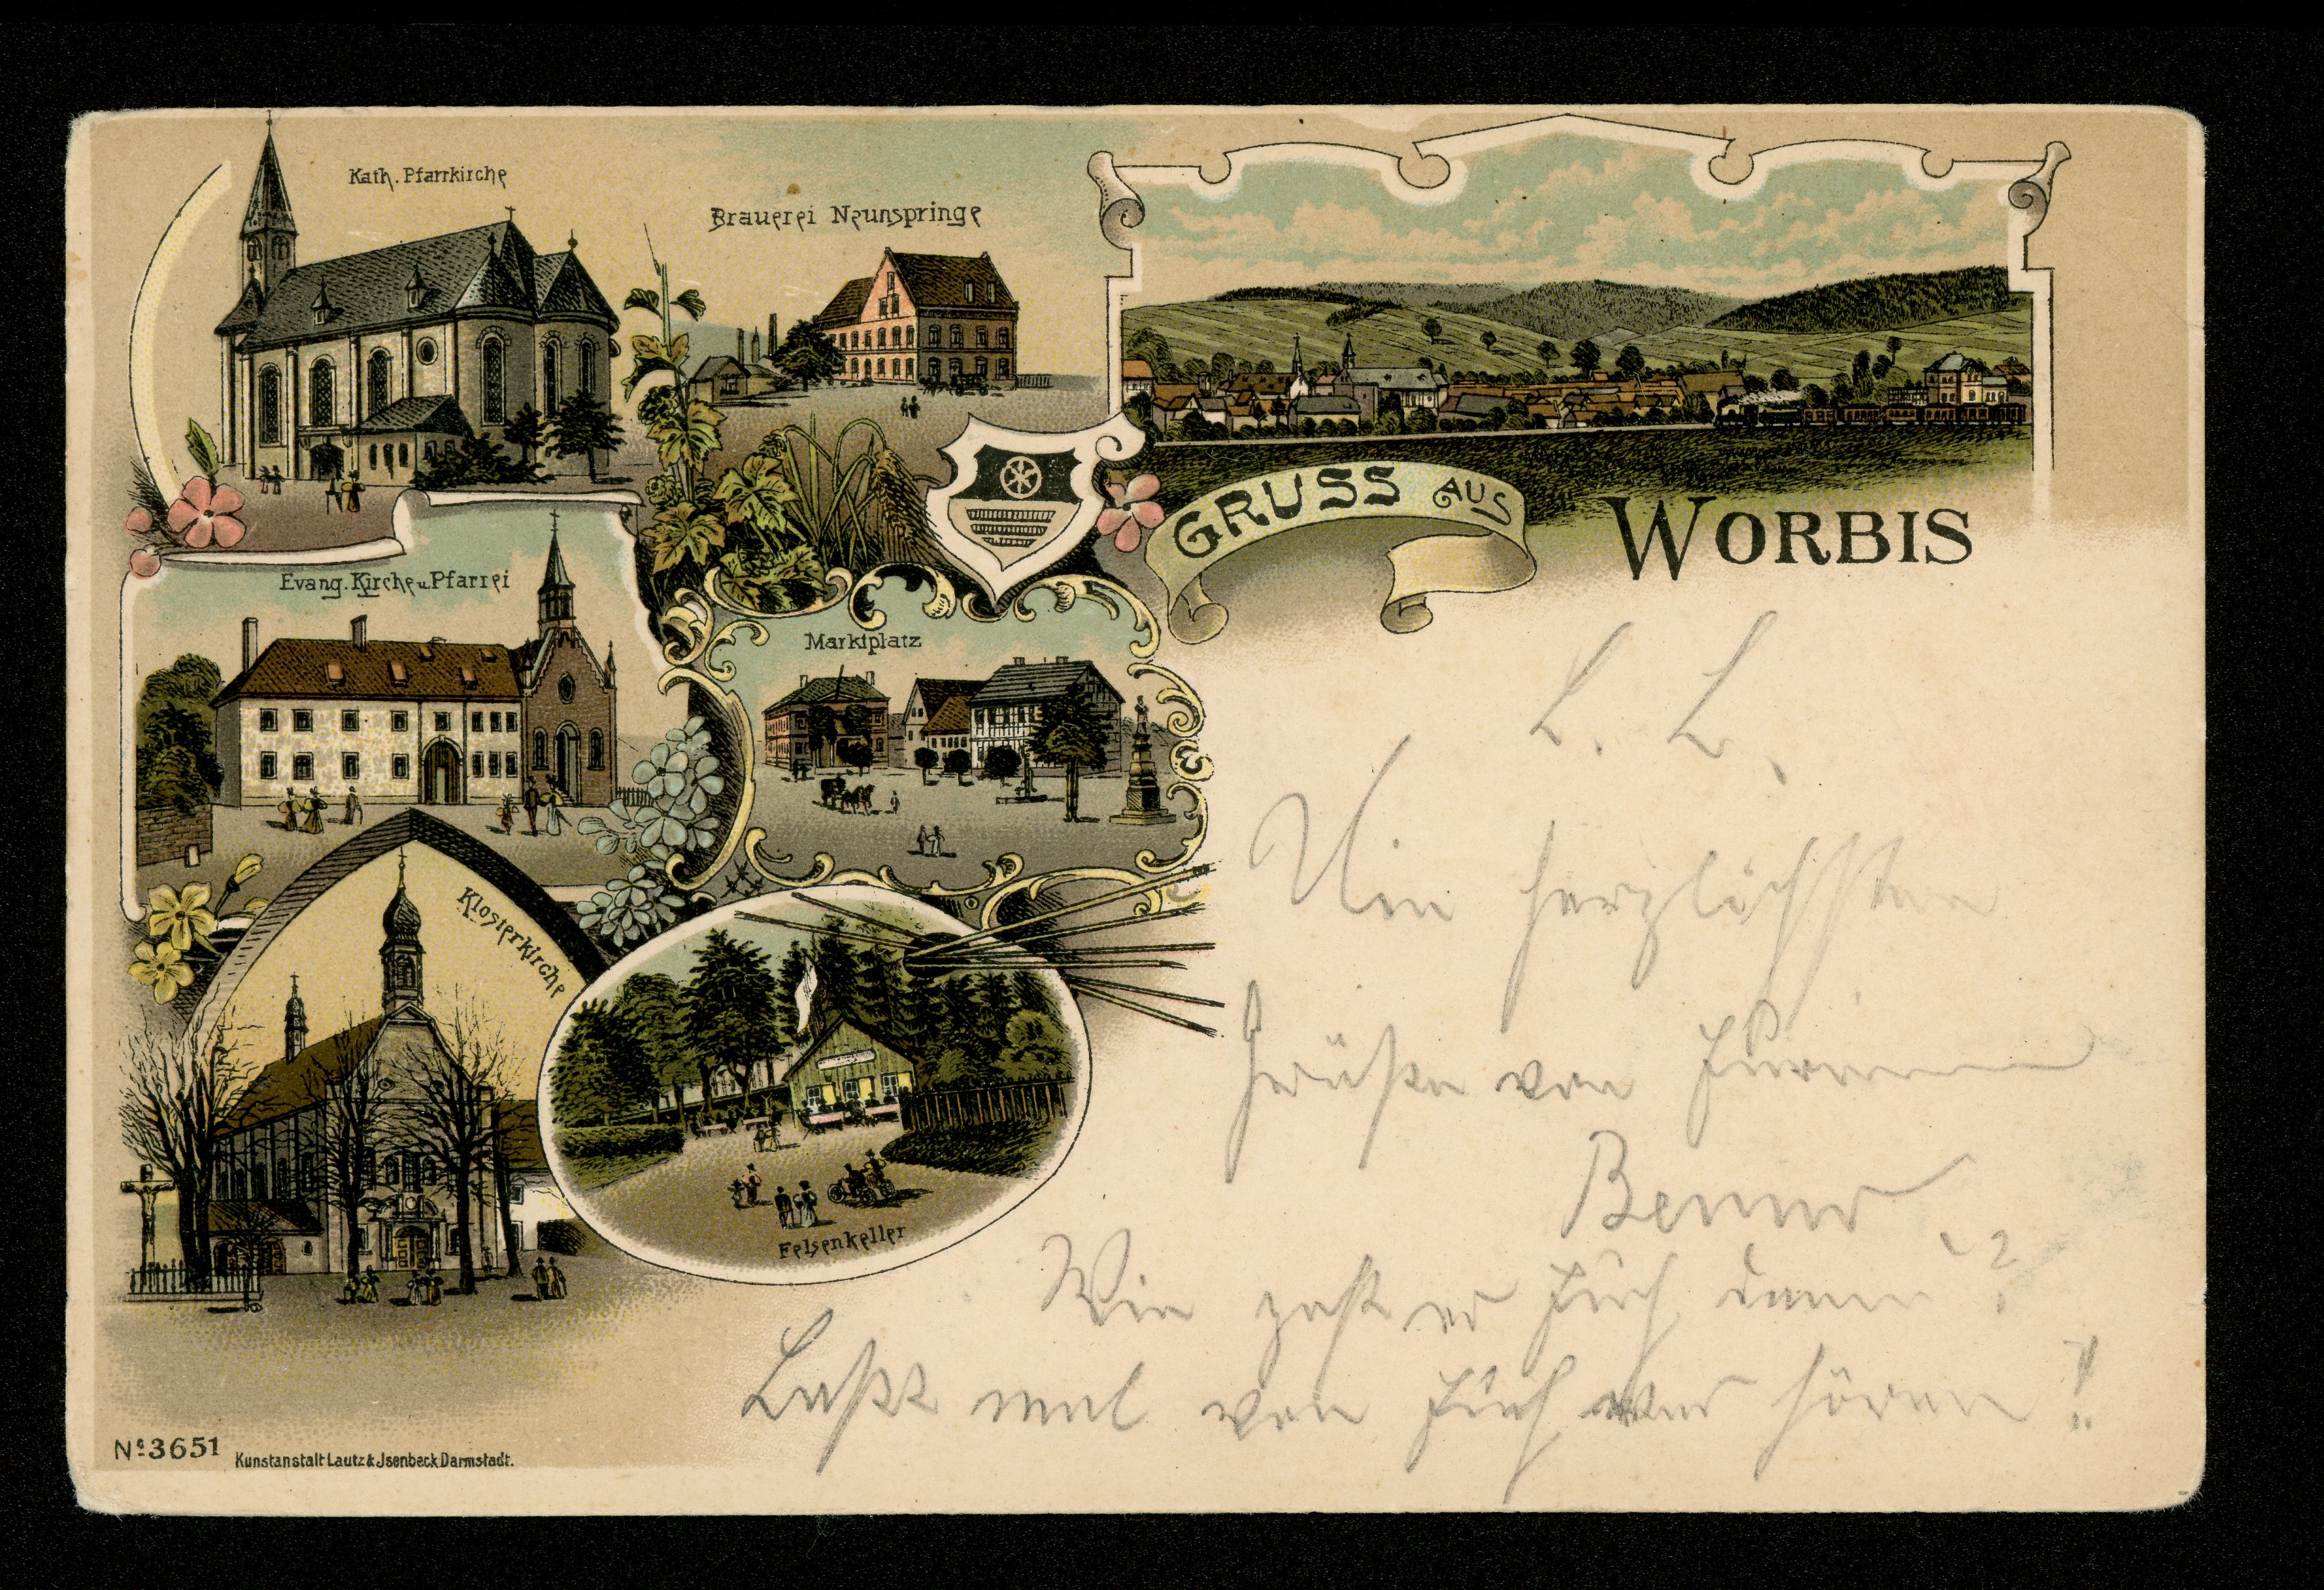 Kath. Pfarrkirche
Brauerei Neunspringe
GRUSS AUS
WORBIS
Evang. Kirche u. Pfarrei
Marktplatz
Klosterkirche
Felsenkeller
L. L.
Die herzlichsten
Grüße von Eurem
Benno
Wie geht es Euch denn?
Laßt mal von Euch was hören!
No. 3651
Kunstanstalt Lautz & Jsenbeck Darmstadt.